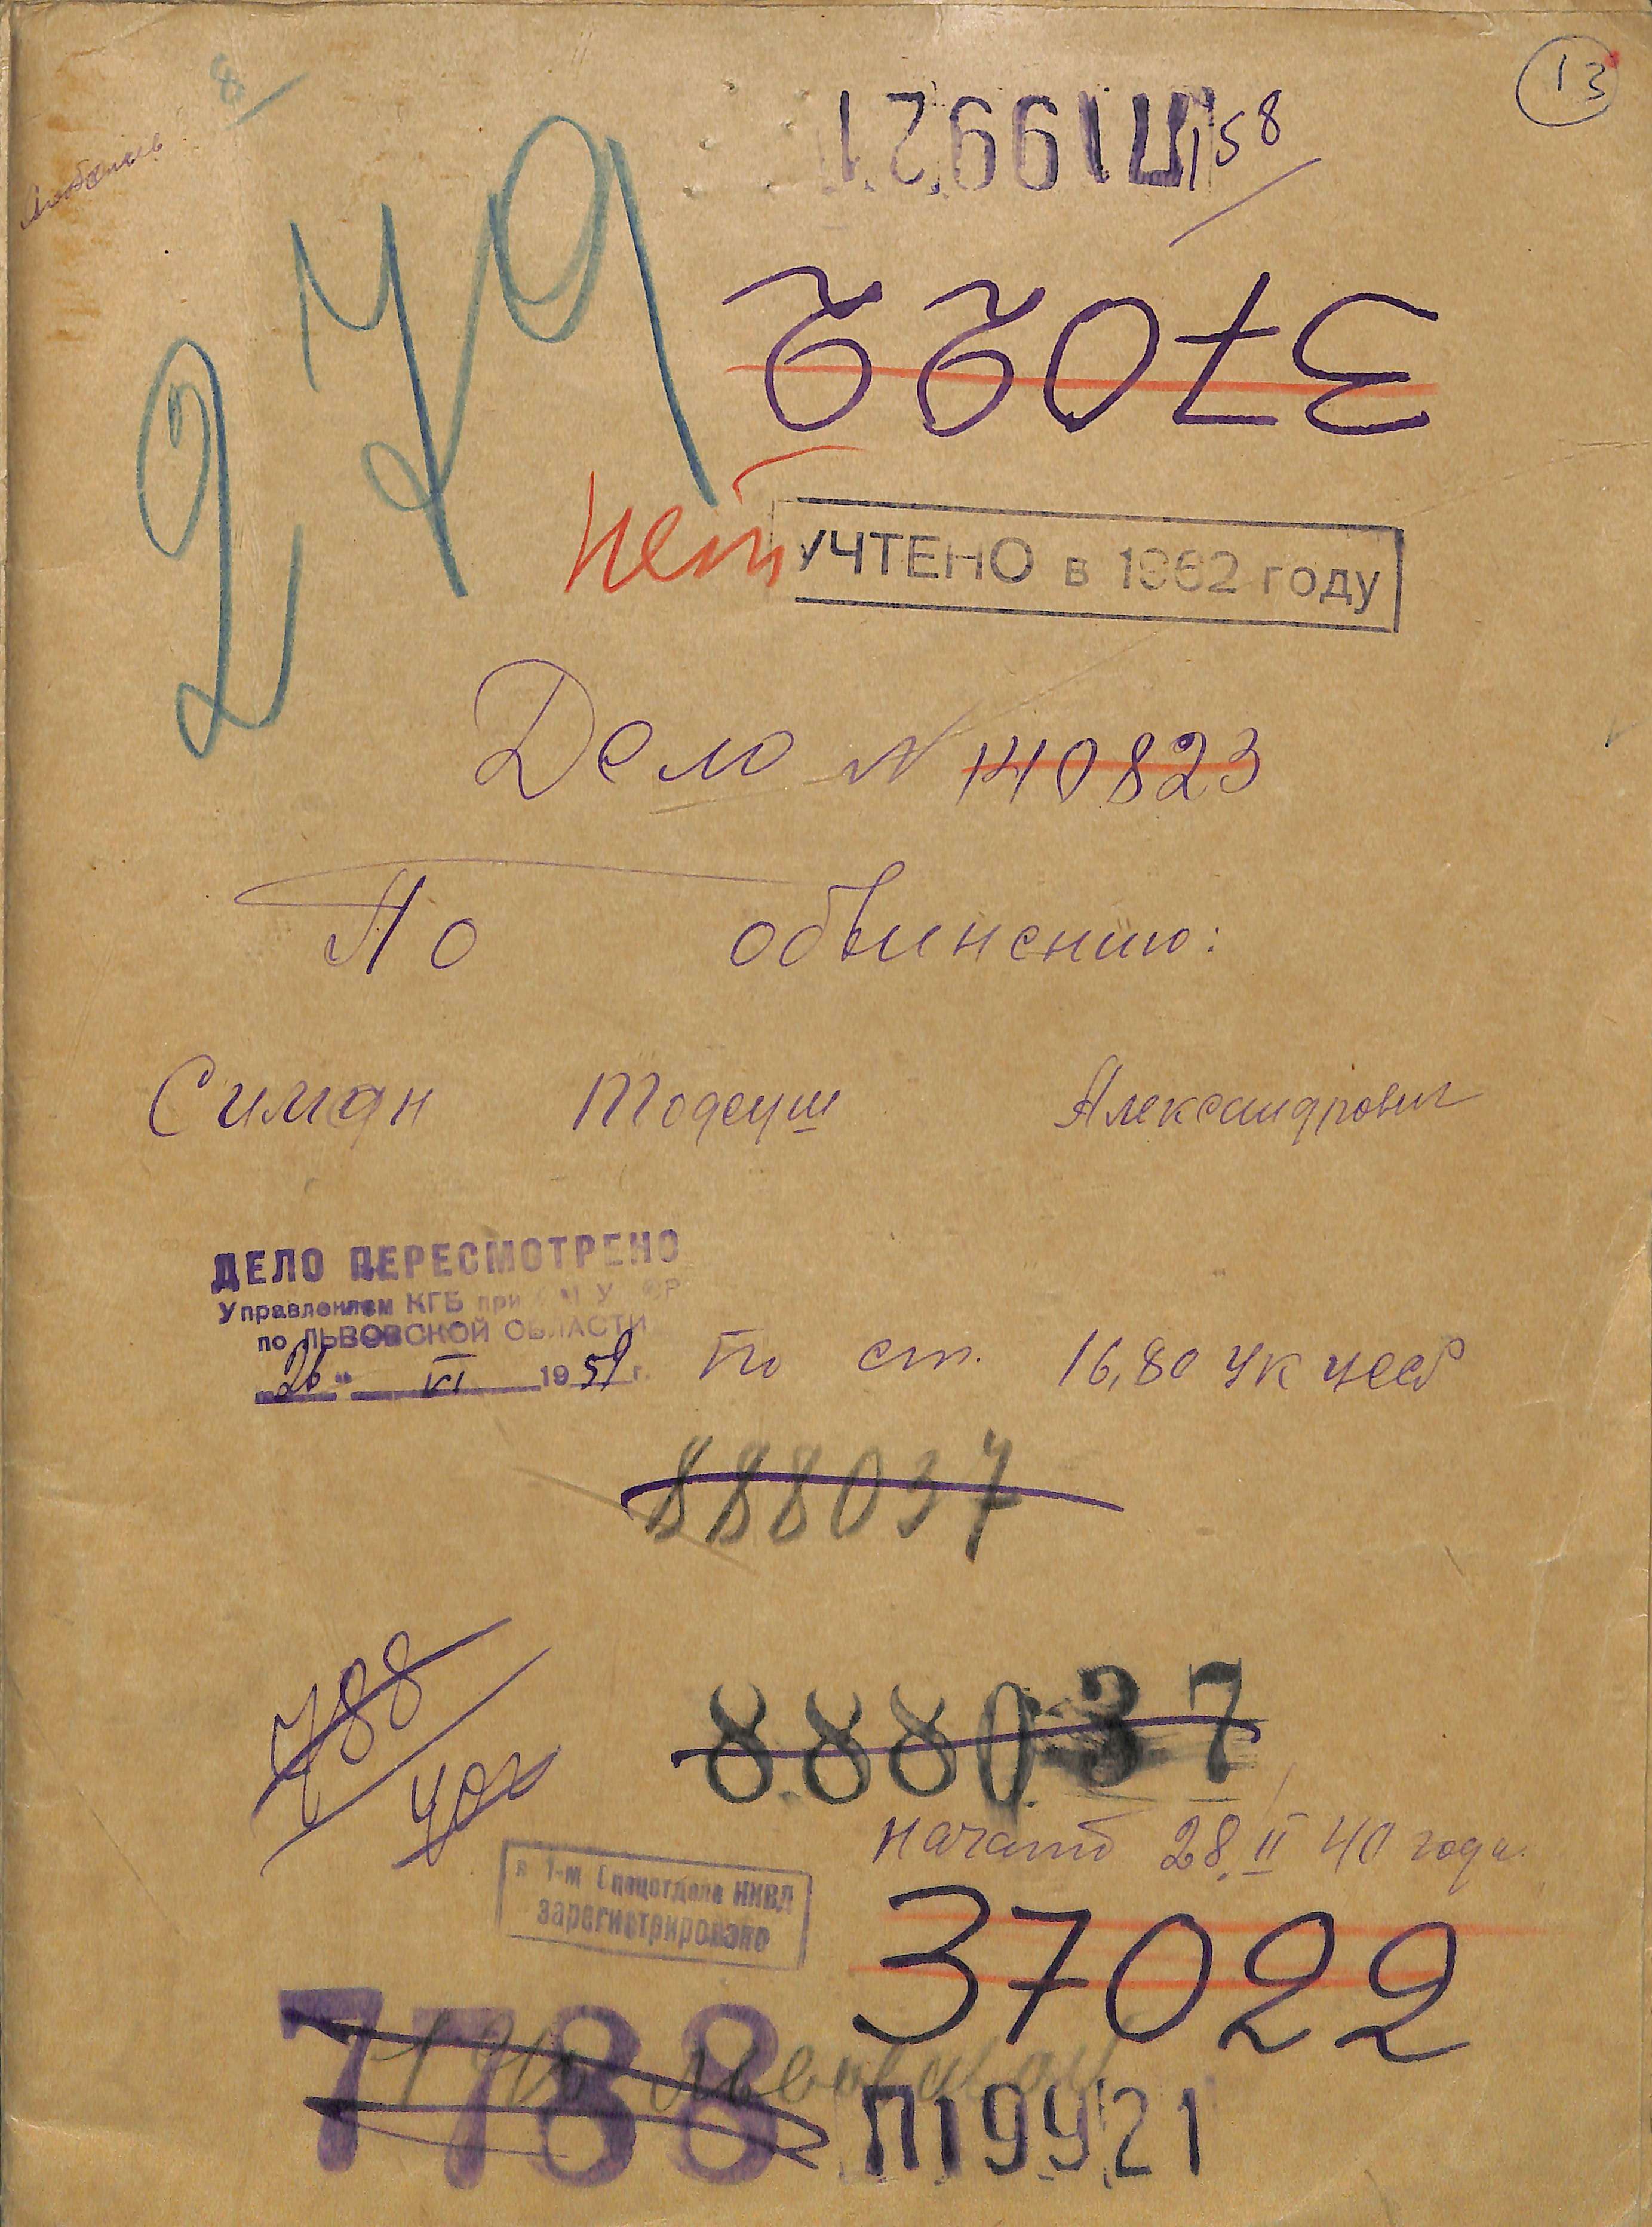 13
8
П19921
158
37022
279
нет
УЧТЕНО в 1962 году
Дело N 140823
По обвинению:
Симан Тодеуш Александрович
ДЕЛО ПЕРЕСМОТРЕНО
Управлением КГБ при СМ УССР
по ЛЬВОВСКОЙ ОБЛАСТИ
"26" VI 1959 г.
По ст. 16,80 УК УССР
888037
788
888037
Начато 28.II 40 года.
в 1-м Спецотделе НКВД
зарегистрировано
37022
7788
П19921